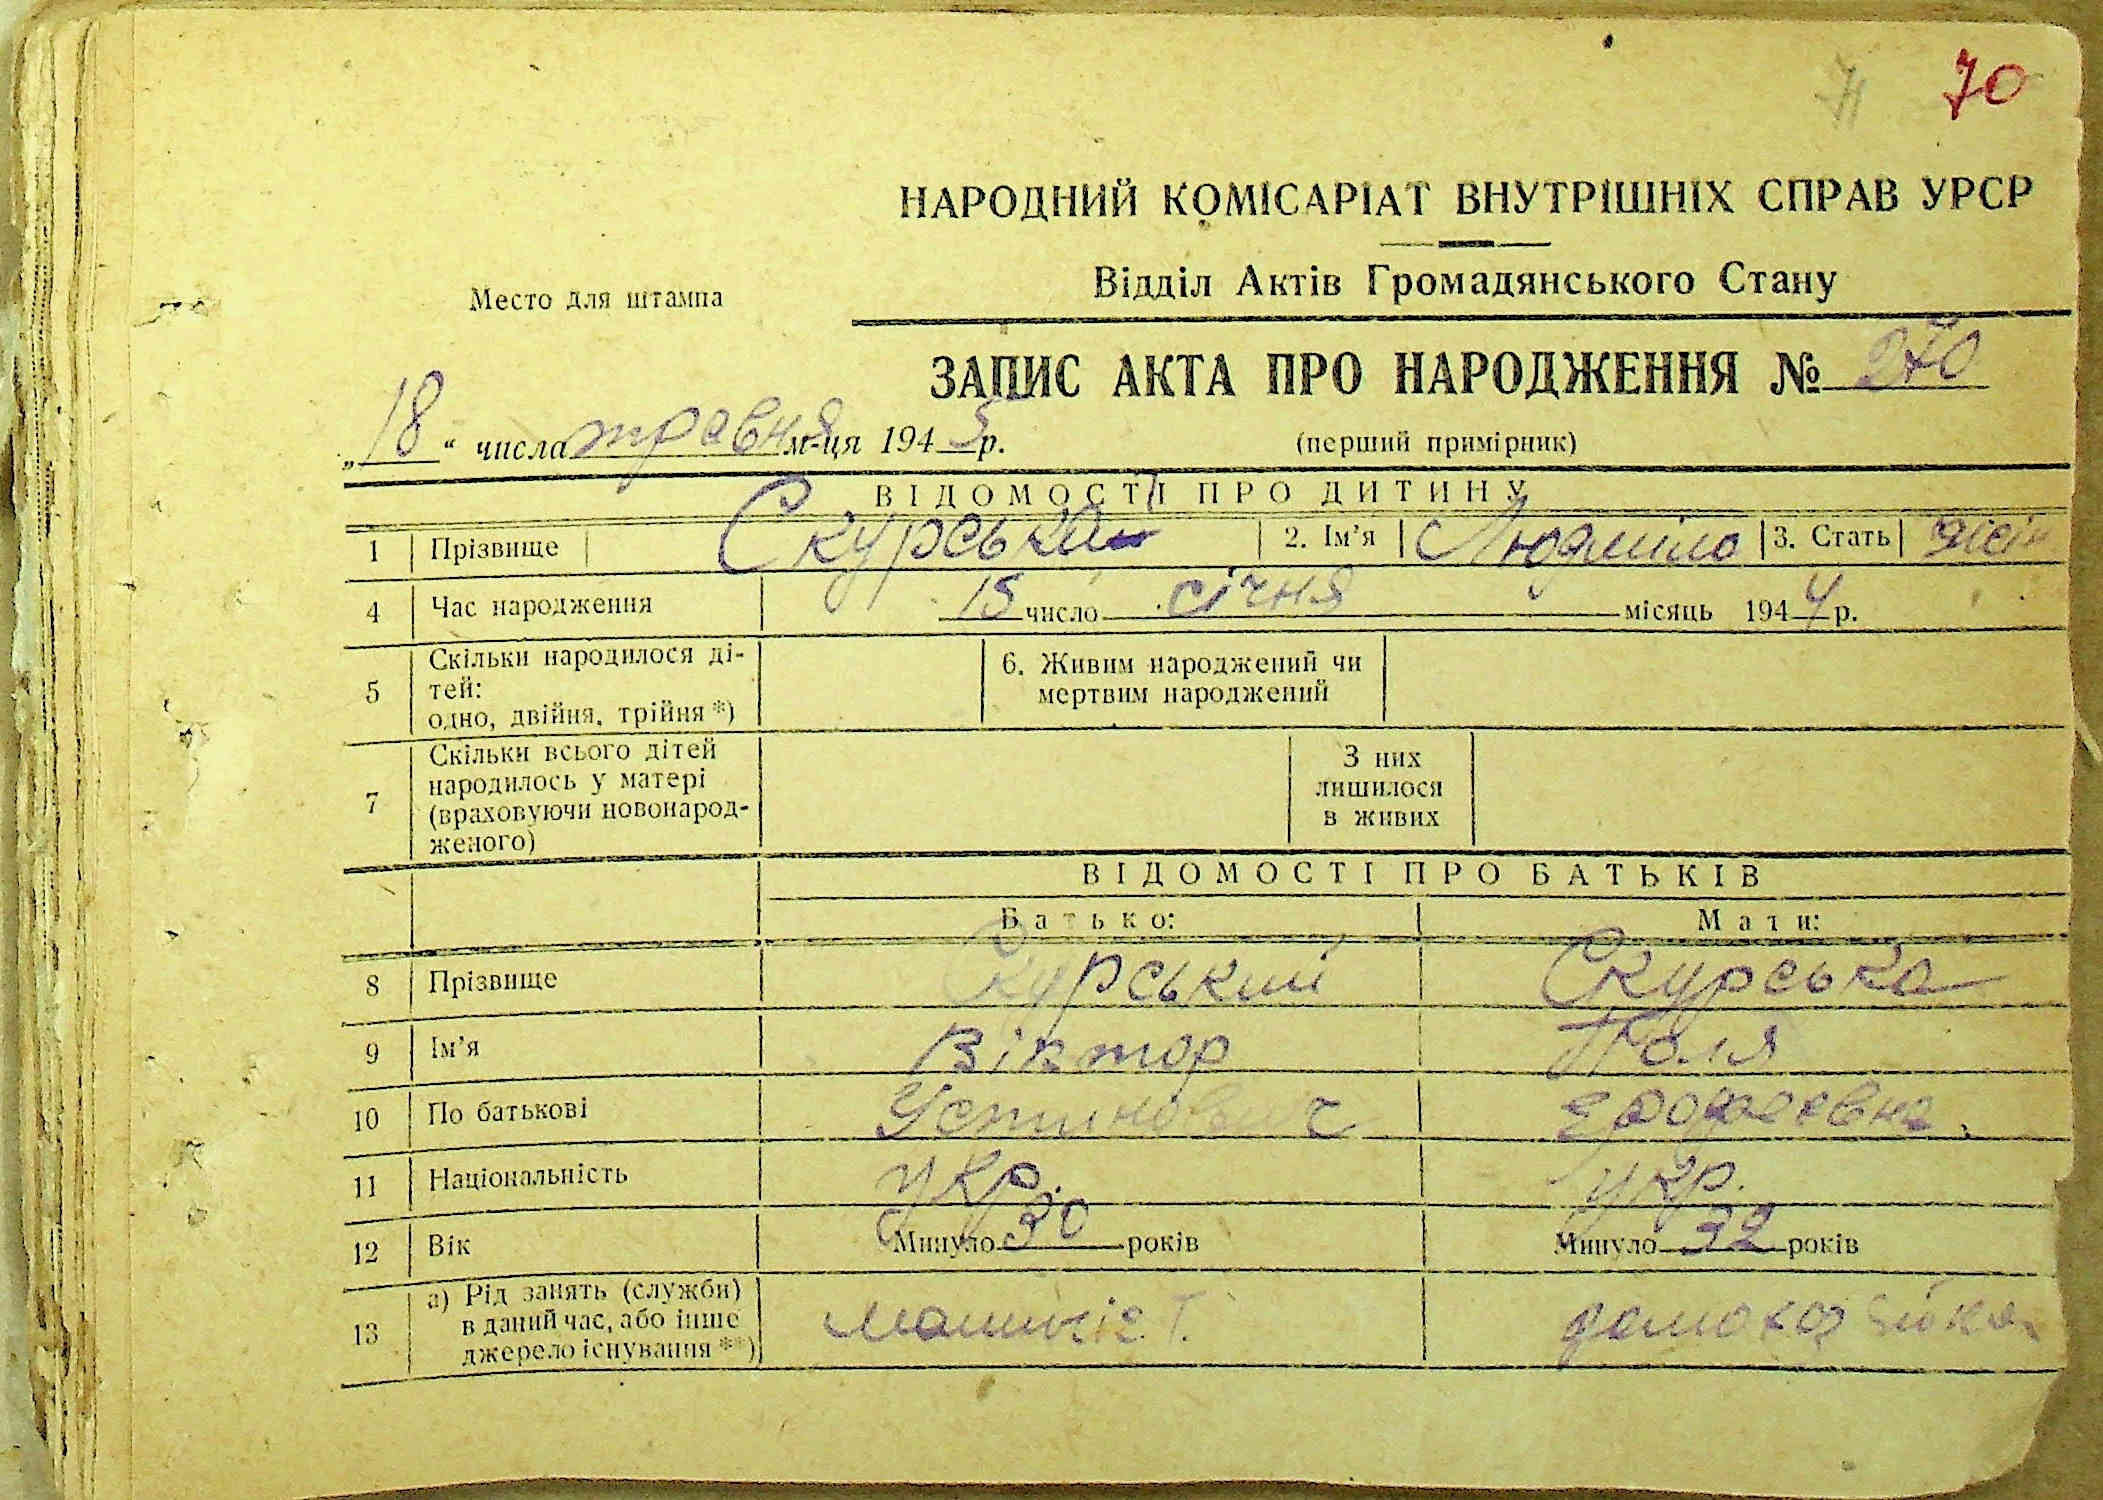 71 70
НАРОДНИЙ КОМІСАРІАТ ВНУТРІШНІХ СПРАВ УРСР
Відділ Актів Громадянського Стану
Место для штампа
ЗАПИС АКТА ПРО НАРОДЖЕННЯ № 270
„18“ числа травня м-ця 1945 р.
(перший примірник)
ВІДОМОСТІ ПРО ДИТИНУ
1 Прізвище Скурська 2. Ім’я Людміла 3. Стать
4 Час народження 15 число січня місяць 1944 р.
5 Скільки народилося ді-
тей:
одно, двійня, трійня *)
6. Живим народжений чи
мертвим народжений
7 Скільки всього дітей
народилось у матері
(враховуючи новонарод-
женого)
З них
лишилося
в живих
ВІДОМОСТІ ПРО БАТЬКІВ
Батько: Мати:
8 Прізвище Скурський Скурська
9 Ім’я Віктор Поля
10 По батькові Устинович
11 Національність укр. укр.
12 Вік Минуло 30 років Минуло 32 років
13 а) Рід занять (служби)
в даний час, або інше
джерело існування **)